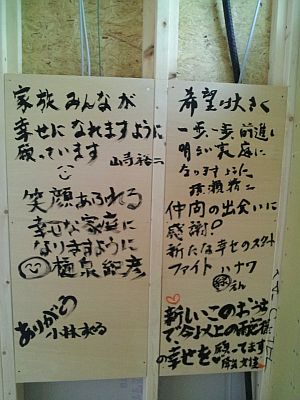 家族みんなが
幸せになれますように
願っています
山寺裕二
笑顔あふれる
幸せな家庭に
なりますように
ありがとう
小林
希望は大きく
一歩一歩前進し
明るい家庭に
なりますように
仲間の出会いに
感謝!
新たな幸せのスタート
ファイト ハナワ
新しいこのおうちで
今以上の
の幸せを願ってます